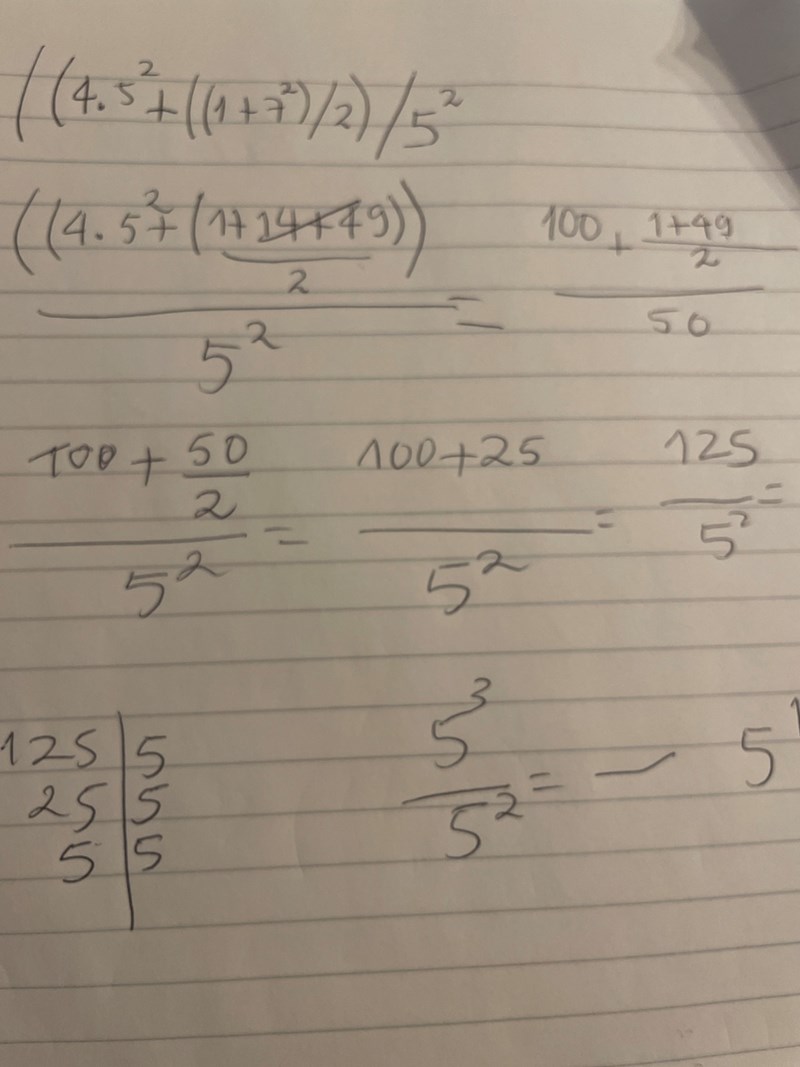 ((4.5²+((1+7²)/2)/5²
((4.5²+(1+14+49))/2)/5² = (100+(1+49)/2)/50
(100+50/2)/5² = (100+25)/5² = 125/5² =
125|5
25|5
5|5
5³/5² = — 5¹